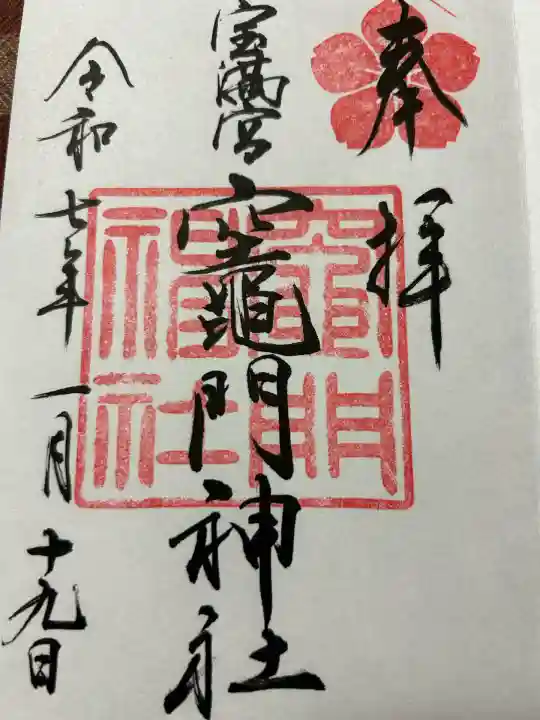 奉拝
宝満宮
竈門神社
令和七年一月十九日
竈門神社